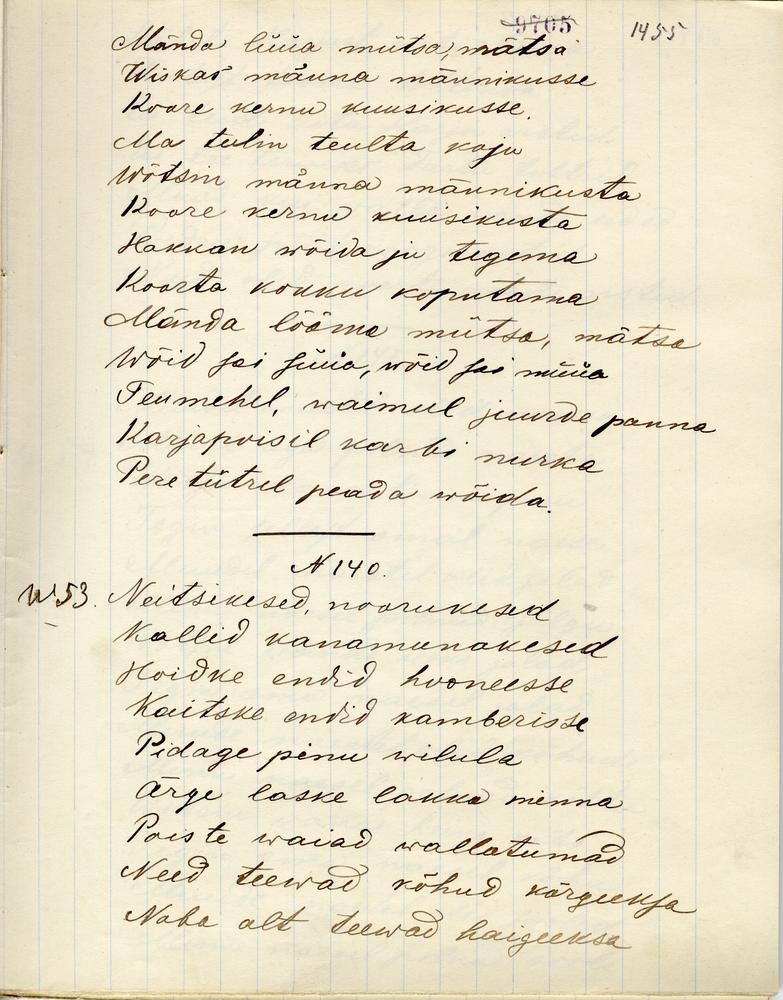 9705
1455
Mända lüüa mütsa, mätsa
Wiskas männa männikusse
Koore kernu kuusikusse.
Ma tulin teulta koju
Wõtsin männa männikusta
Koore kernu kuusikusta
Hakkan wõida ju tegema
Koorta kokku koputama
Mända lööma mütsa, mätsa
Wõid sai süüa, wõid sai müüa
Teumehel, waimul juurde panna
Karjapoisil karbi nurka
Pere tütrel peada wõida.
N 140.
W 53. Neitsikesed, noorukesed
Kallid kanamunakesed
Hoidke endid hooneesse
Kaitske endid kamberisse
Pidage pinu wilula
Ärge laske lakka minna
Poiste waiad wallatumad
Need teewad kõhud kõrgeeksa
Naba alt teewad haigeeksa